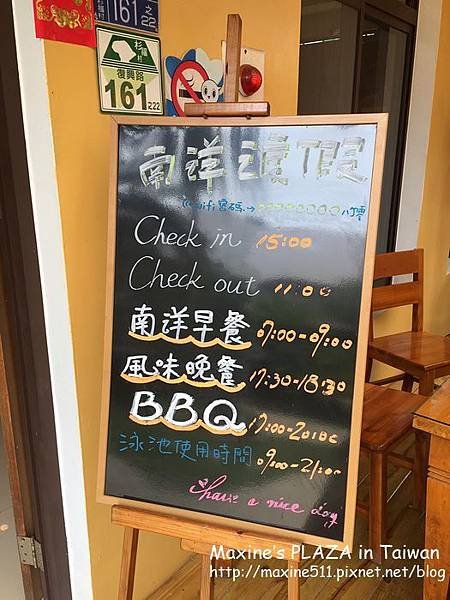 161之
杉福村
復興路
161 222
南洋渡假
wifi密碼→00000000 八個零
Check in 15:00
Check out 11:00
南洋早餐 07:00-09:00
風味晚餐 17:30-18:30
BBQ 17:00-20:00
泳池使用時間 09:00-21:00
have a nice day
Maxine's PLAZA in Taiwan
http://maxine511.pixnet.net/blog